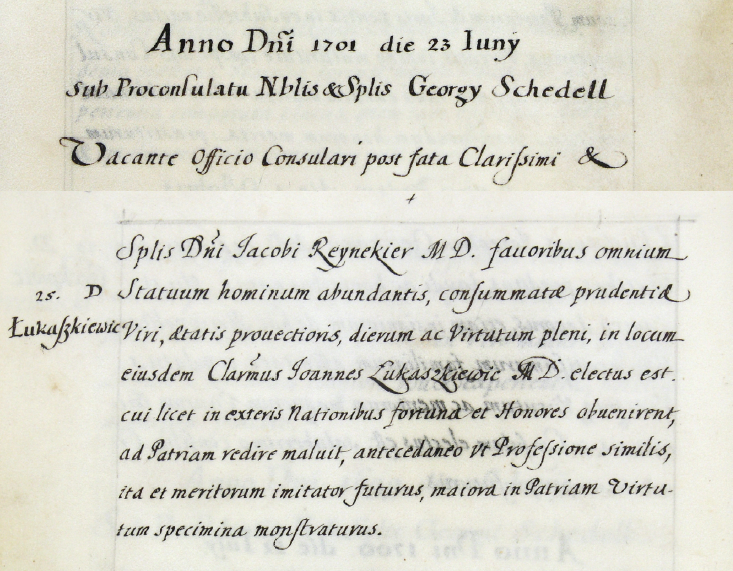 Anno Dñi 1701 die 23 Iuny
sub Proconsulatu Nblis & Splis Georgy Schedell
Vacante Officio Consulari post fata Clarissimi &
Splis Dñi Iacobi Reynekier MD. fauoribus omnium
Statuum hominum abundantis, consummatæ prudentiæ
25. D
Łukaszkiewic
Viri, ætatis prouectioris, dierum ac Virtutum pleni, in locum
eiusdem Clarm̃us Ioannes Lukaszkiewic MD electus est.
cui licet in exteris Nationibus fortuna et Honores obuenirent,
ad Patriam redire maluit, antecedaneo vt Professione similis,
ita et meritorum imitator futurus, maiora in Patriam Virtu-
tum specimina monstraturus.